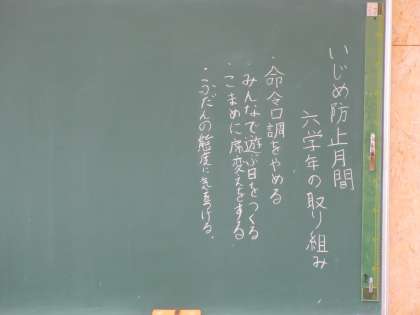 いじめ防止月間
六学年の取り組み
・命令口調をやめる
・みんなで遊ぶ日をつくる
・こまめに席変えをする
・ふだんの態度に気をつける。